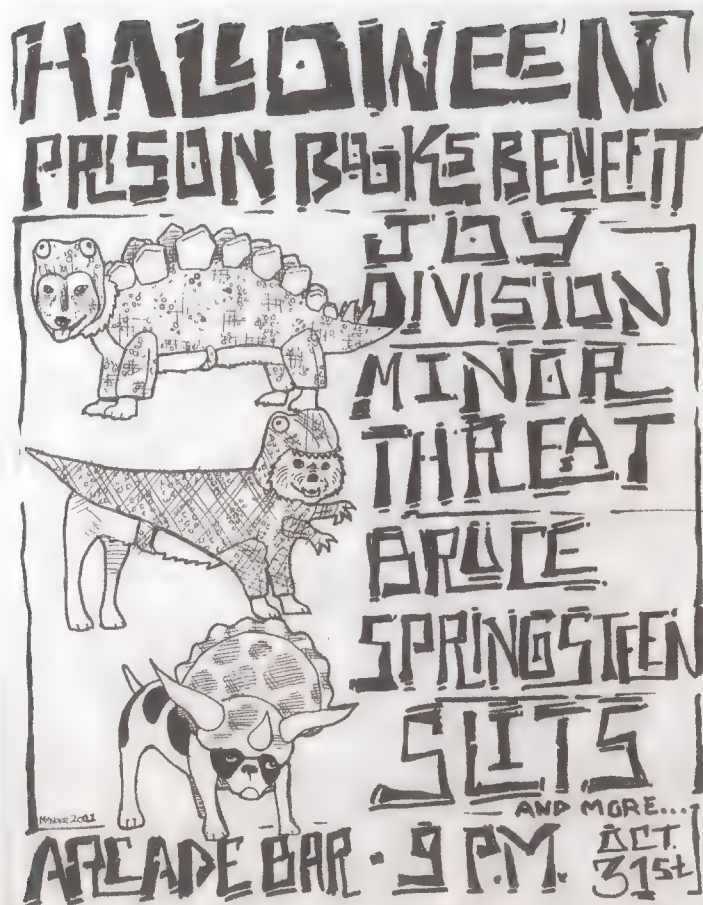 HALLOWEEN
PRISON BOOKS BENEFIT
JOY
DIVISION
MINOR
THREAT
BRUCE
SPRINGSTEEN
SLITS
AND MORE...
ARCADE BAR • 9 P.M. OCT.
31st